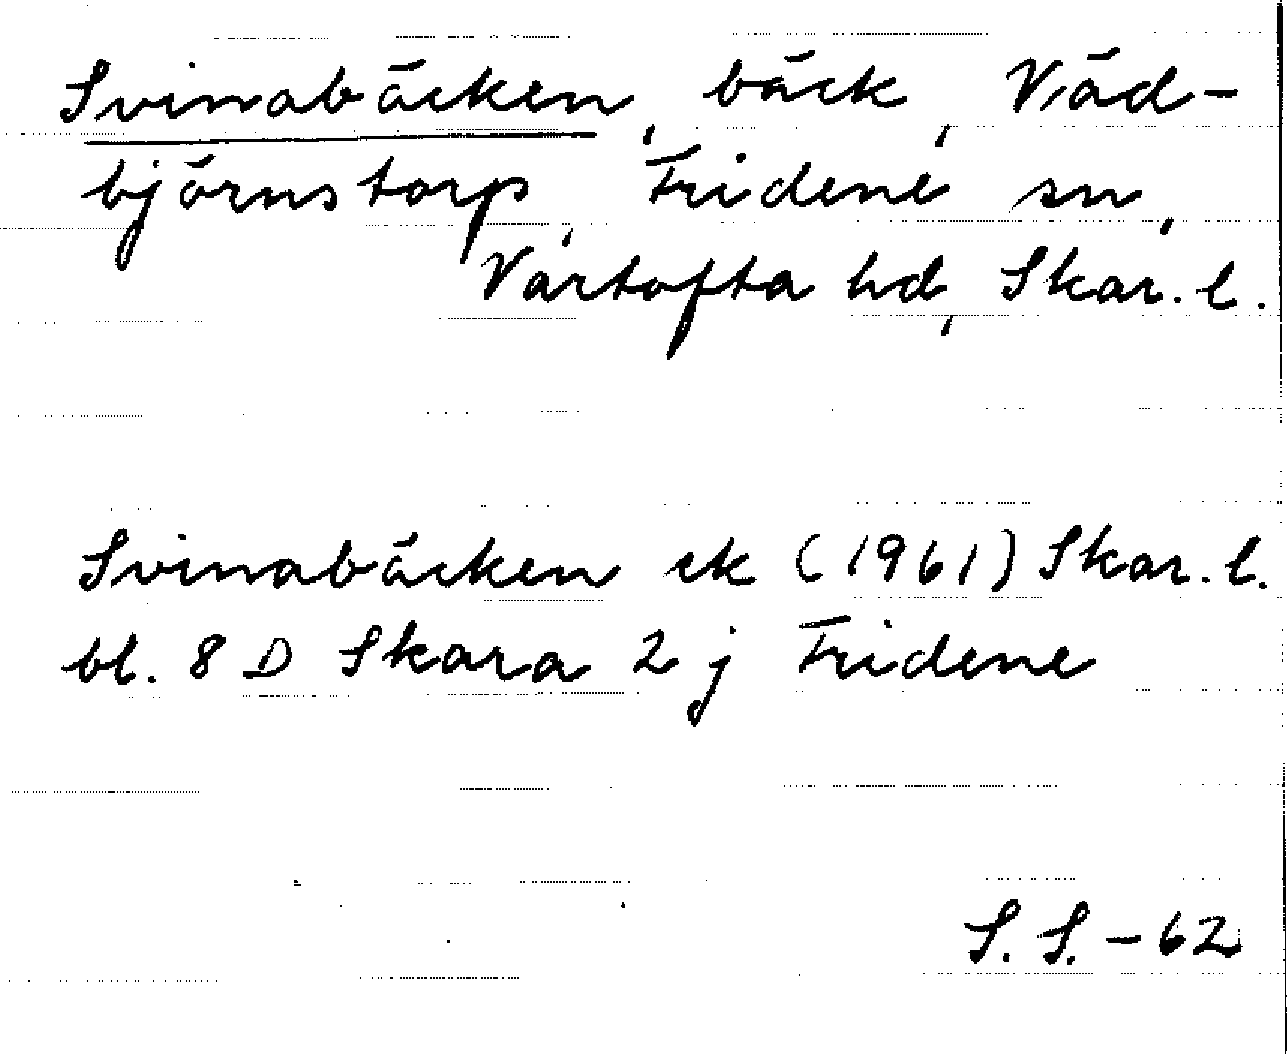 Svinabäcken, bäck, Väd-
björnstorp, Fridene sn,
Vartofta hd, Skar. l.
Svinabäcken ek (1961) Skar. l.
bl. 8 D Skara 2 j Fridene
S. S. - 62